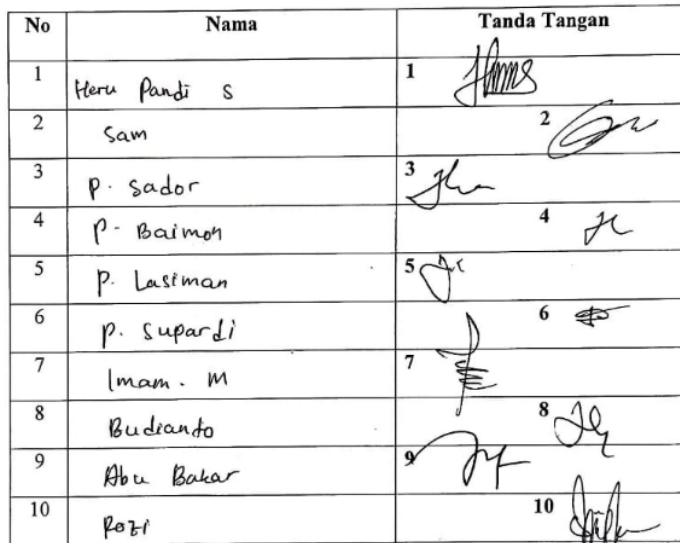 No Nama Tanda Tangan
1 Heru Pandi S 1
2 Sam 2
3 P. Sador 3
4 P. Baimon 4
5 P. Lasiman 5
6 P. Supardi 6
7 Imam. M 7
8 Budianto 8
9 Abu Bakar 9
10 Rozi 10